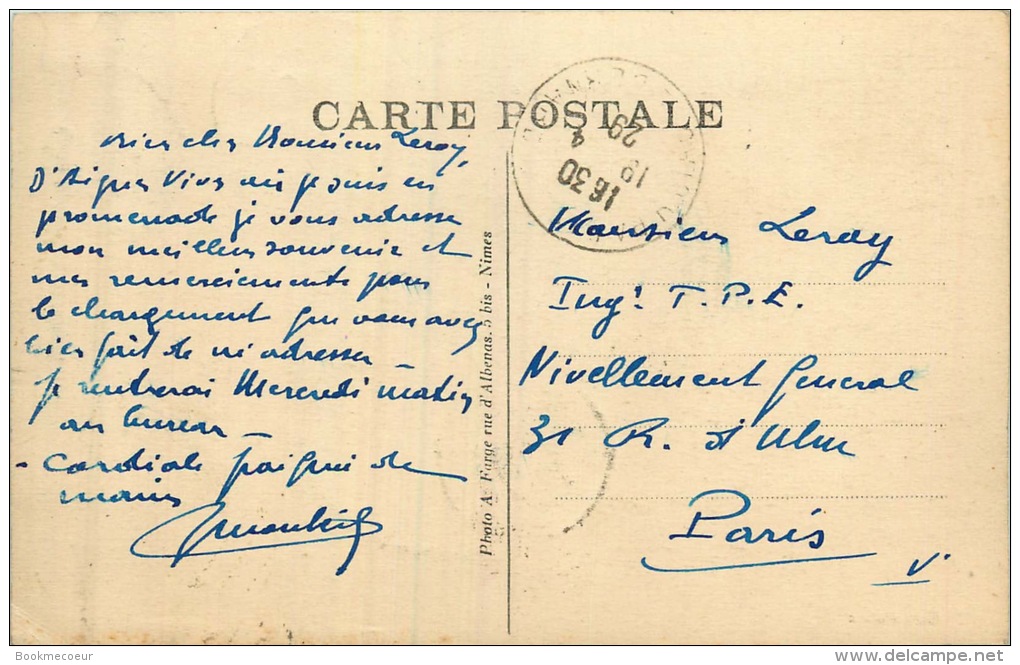 CARTE POSTALE
bien cher Monsieur Leroy,
D'Aigues Vives où je suis en
promenade je vous adresse
mon meilleur souvenir et
mes remerciements pour
le chargement que vous avez
bien fait de m'adresser _
Je rentrerai Mercredi matin
au bureau _
- Cordiale poignée de
mains
Photo A. Farge rue d'Albenas. 5 bis - Nimes
1630
19
4
29
Monsieur Leroy
Ingr T. P. E.
Nivellement General
31 R. d'Ulm
Paris
V.
Bookmecoeur
delcampe.net